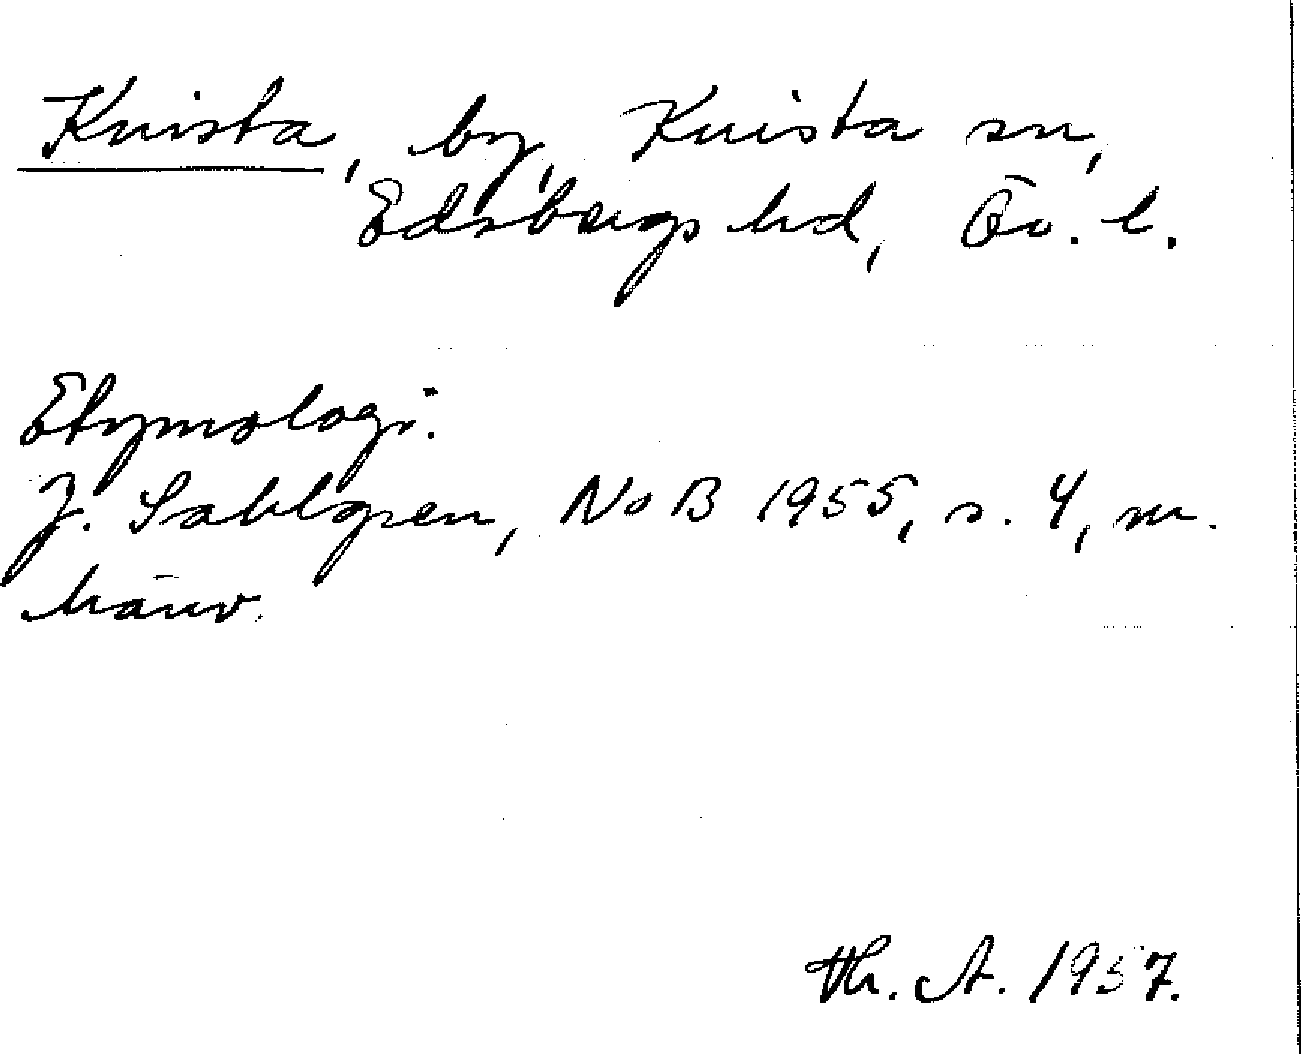 Knista, by, Knista sn,
Edsbergs hd, Ör. l.
Etymologi.
J. Sahlgren, NoB 1955, s. 4, m.
hänv.
Th. A. 1957.